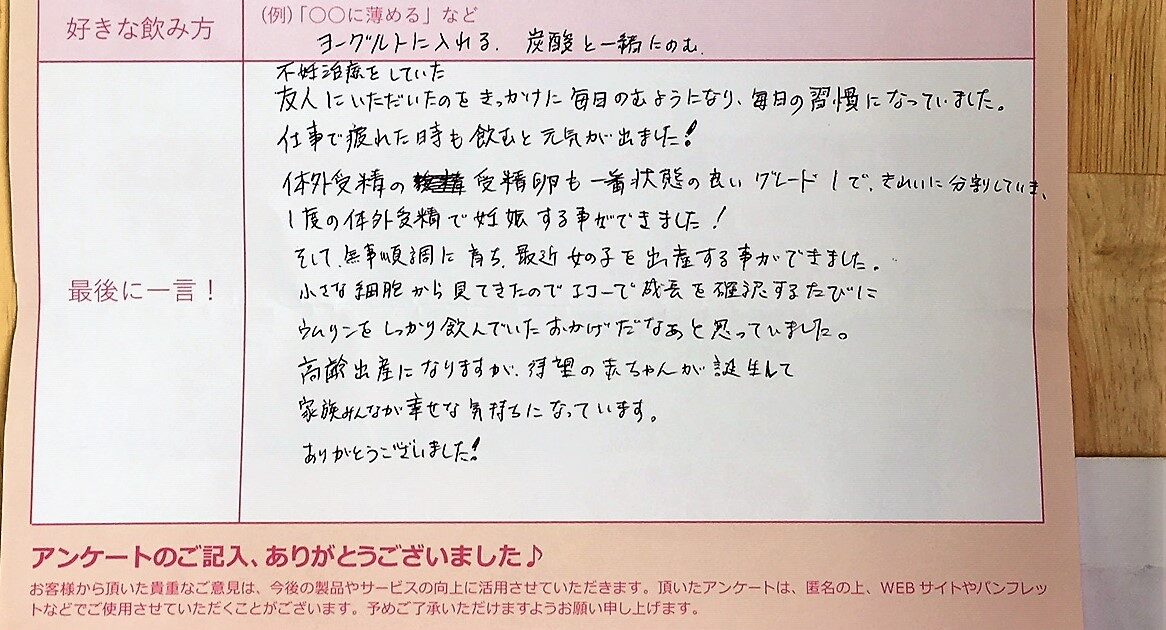 好きな飲み方
(例)「○○に薄める」など
ヨーグルトに入れる. 炭酸と一緒にのむ.
最後に一言！
不妊治療をしていた
友人にいただいたのをきっかけに毎日のむようになり、毎日の習慣になっていました。
仕事で疲れた時も飲むと元気が出ました！
体外受精の 受精卵も一番状態の良いグレード1で、きれいに分割していき、
1度の体外受精で妊娠する事ができました！
そして、無事順調に育ち、最近女の子を出産する事ができました。
小さな細胞から見てきたのでエコーで成長を確認するたびに
ウムリンをしっかり飲んでいたおかげだなぁと思っていました。
高齢出産になりますが、待望の赤ちゃんが誕生して
家族みんなが幸せな気持ちになっています。
ありがとうございました！
アンケートのご記入、ありがとうございました♪
お客様から頂いた貴重なご意見は、今後の製品やサービスの向上に活用させていただきます。頂いたアンケートは、匿名の上、WEBサイトやパンフレッ
トなどでご使用させていただくことがございます。予めご了承いただけますようお願い申し上げます。